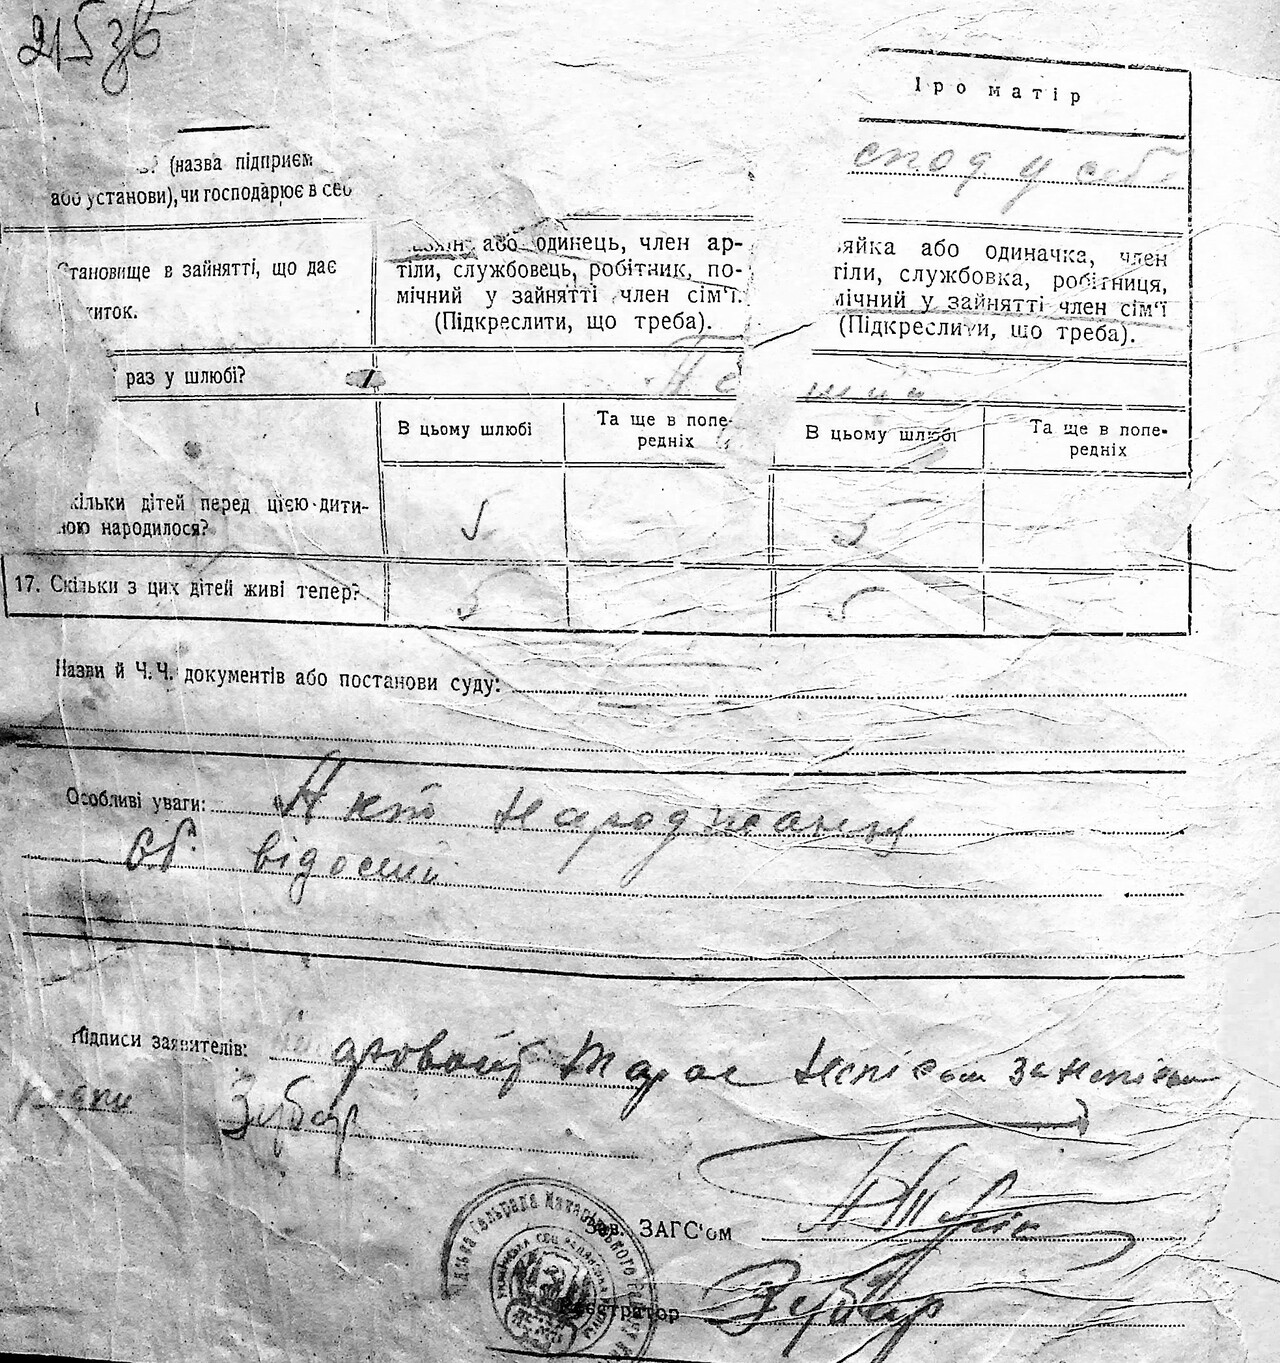 215 зв
Про матір
(назва підприєм
або установи), чи господарює в себ
спод у себ
Становище в зайнятті, що дає
житок.
або одинець, член ар-
тіли, службовець, робітник, по-
мічний у зайнятті член сім'ї.
(Підкреслити, що треба).
яйка або одиначка, член
тіли, службовка, робітниця,
мічний у зайнятті член сім'ї
(Підкреслити, що треба).
раз у шлюбі?
В цьому шлюбі
Та ще в попе-
редніх
В цьому шлюбі
Та ще в попе-
редніх
кільки дітей перед цією дити-
ною народилося?
17. Скільки з цих дітей живі тепер?
Назви й Ч.Ч. документів або постанови суду:
Особливі уваги: Акт народження
відомий
Підписи заявителів: Тарас
Зубар
Зав. ЗАГС'ом
Реєстратор Зубар